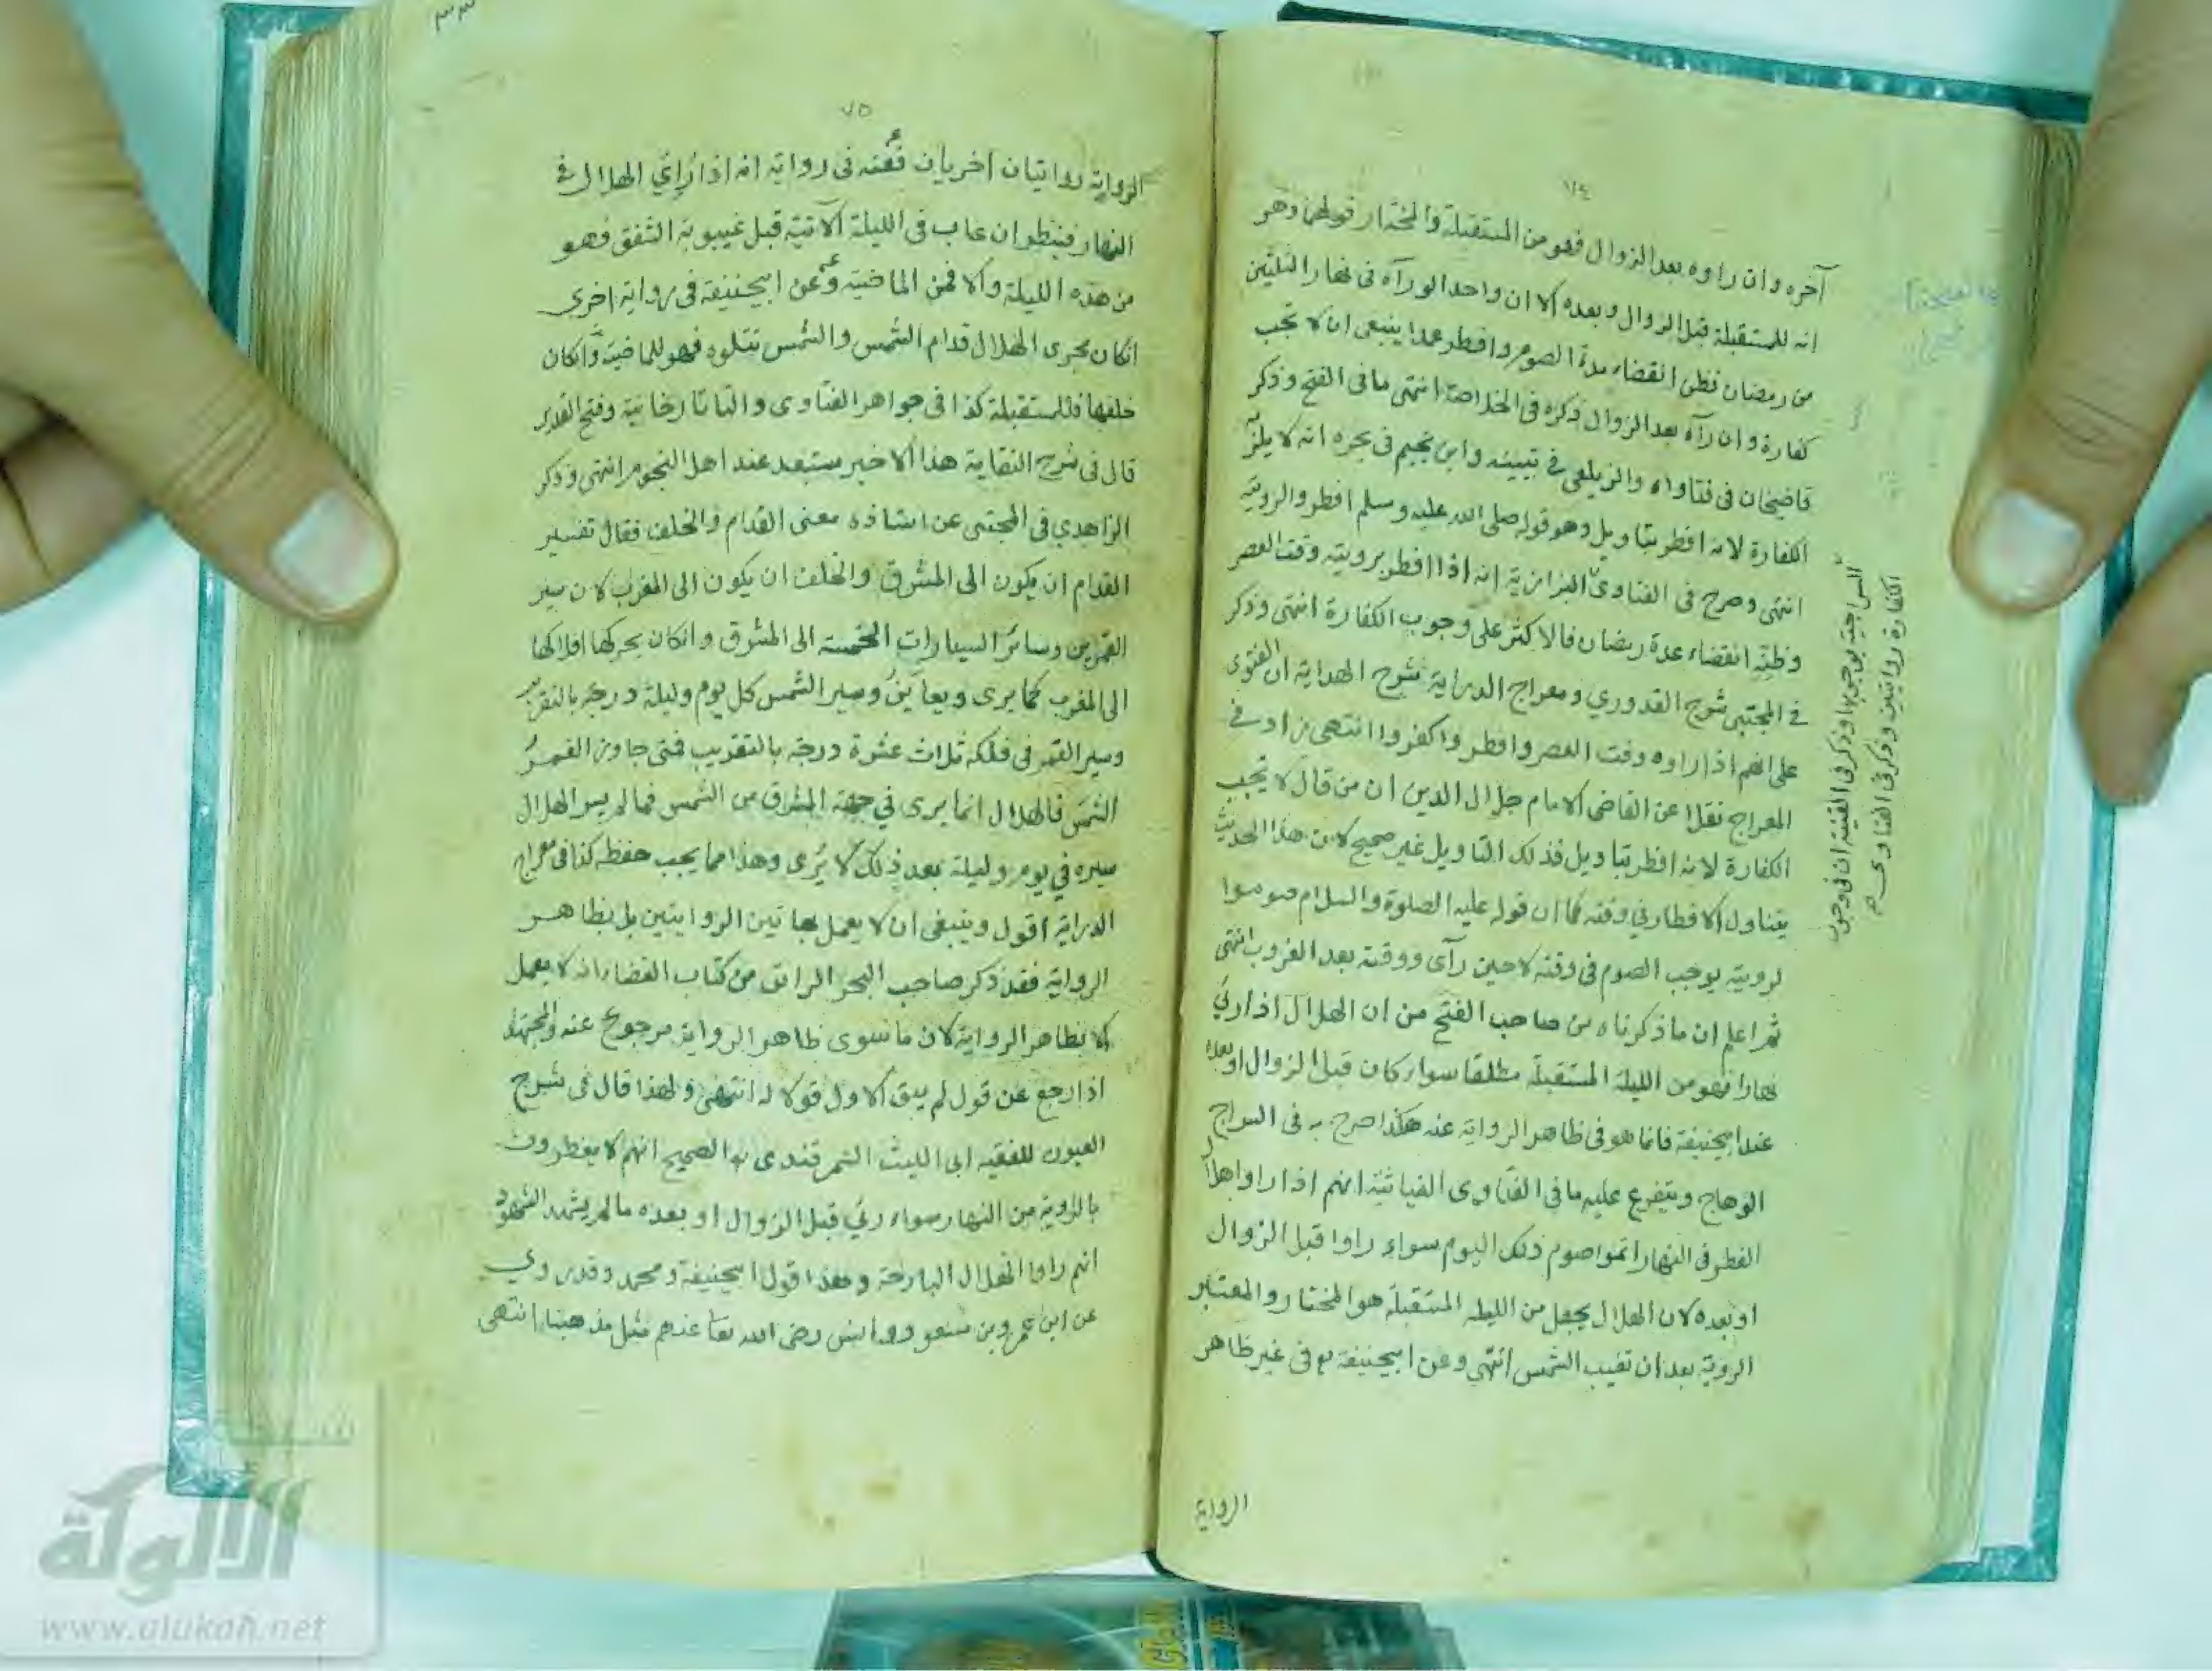 ٧٤
آخره وان راوه بعد الزوال فهو من المستقبلة والمختار قولهما وهو
انه للمستقبلة قبل الزوال وبعده الا ان واحدا لو رآه فى نهار الثلثين
من رمضان فظن انقضاء مدة الصوم وافطر عمدا ينبغى ان لا تجب
كفارة وان رآه بعد الزوال ذكره فى الخلاصة انتهى ما فى الفتح وذكر
قاضيخان فى فتاواه والزيلعى فى تبيينه وابن نجيم فى بحره انه لا يلزمه
الكفارة لانه افطر بتاويل وهو قوله صلى الله عليه وسلم افطروا لرويته
انتهى وصرح فى الفتاوى البزازية انه اذا افطر برويته وقت العصر
وظنه انقضاء عدة رمضان فالاكثر على وجوب الكفارة انتهى وذكر
فى المجتبى شرح القدوري ومعراج الدراية شرح الهداية ان الفتوى
على انهم اذا راوه وقت العصر وافطروا كفروا انتهى زاد فى
المعراج نقلا عن القاضى الامام جلال الدين ان من قال لا تجب
الكفارة لانه افطر بتاويل فذلك التاويل غير صحيح لان هذا الحديث
يتناول الافطار في وقته كما ان قوله عليه الصلوة والسلام صوموا
لرويته يوجب الصوم فى وقته لا حين رآى ووقته بعد الغروب انتهى
ثم اعلم ان ما ذكرناه من صاحب الفتح من ان الهلال اذا رئي
نهارا فهو من الليلة المستقبلة مطلقا سواء كان قبل الزوال او بعده
عند ابيحنيفة فانما هو فى ظاهر الرواية عنه هكذا صرح به فى السراج
الوهاج ويتفرع عليه ما فى الفتاوى الغياثية انهم اذا راوا هلال
الفطر فى النهار اتموا صوم ذلك اليوم سواء راوا قبل الزوال
او بعده لان الهلال يجعل من الليلة المستقبلة هو المختار والمعتبر
الروية بعد ان تغيب الشمس انتهى وعن ابيحنيفة فى غير ظاهر
الرواية
السراجية بوجوبها وذكر فى القنية ان فى وجوب
الكفارة روايتين وذكر فى الفتاوى
٧٥
الرواية روايتان اخريان فعنه فى رواية انه اذا رائي الهلال فى
النهار فينظر ان غاب فى الليلة الاتية قبل غيبوبة الشفق فهو
من هذه الليلة والا فمن الماضية وعن ابيحنيفة فى رواية اخرى
انكان يجرى الهلال قدام الشمس والشمس تتلوه فهو للماضية وانكان
خلفها فللمستقبلة كذا فى جواهر الفتاوى والتاتارخانية وفتح القدير
قال فى شرح النقاية هذا الاخير مستبعد عند اهل النجوم انتهى وذكر
الزاهدي فى المجتبى عن استاذه معنى القدام والخلف فقال تفسير
القدام ان يكون الى المشرق والخلف ان يكون الى المغرب لان سير
القمرين وسائر السيارات الخمسة الى المشرق وانكان يحركها افلاكها
الى المغرب كما يرى ويعاين وسير الشمس كل يوم وليلة درجة بالتقريب
وسير القمر فى فلكه ثلاث عشرة درجة بالتقريب فمتى جاوز القمر
الشمس فالهلال انما يرى في جهة المشرق من الشمس فما لم يسر الهلال
سيره في يوم وليلة بعد ذلك لا يرى وهذا مما يجب حفظه كذا فى معراج
الدراية اقول وينبغى ان لا يعمل بهاتين الروايتين بل بظاهر
الرواية فقد ذكر صاحب البحر الرائق من كتاب القضاء انه لا يعمل
الا بظاهر الرواية لان ما سوى ظاهر الرواية مرجوع عنه والمجتهد
اذا رجع عن قول لم يبق الاول قولا له انتهى ولهذا قال فى شرح
العيون للفقيه ابى الليث السمرقندى الصحيح انهم لا يفطرون
بالروية من النهار سواء رئي قبل الزوال او بعده ما لم يشهد الشهود
انهم راوا الهلال البارحة وهذا قول ابيحنيفة ومحمد وقد روي
عن ابن عمر وبن مسعود وانس رضى الله تعا عنهم مثل مذهبنا انتهى
الالوكة
www.alukah.net